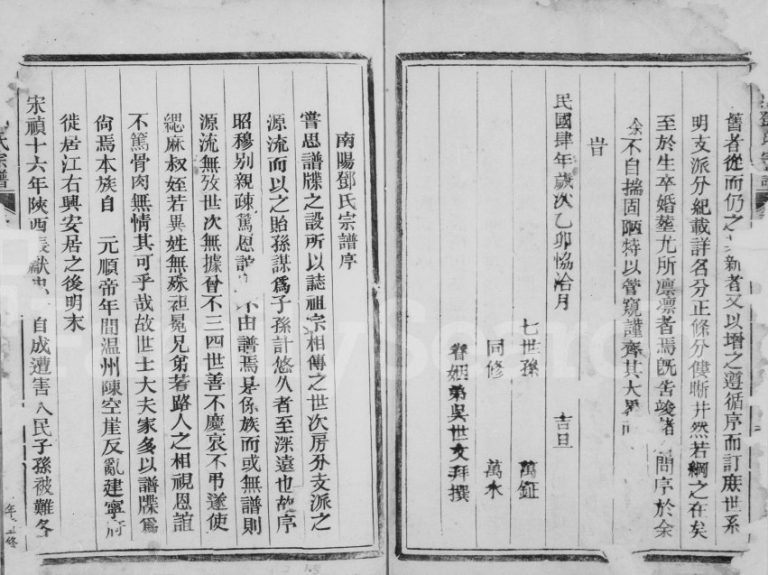 舊者從而仍之新者又以增之遵循序而訂庶世系
明支派分紀載詳名分正條分僂晰井然若綱之在矣
至於生卒婚塟尤所凛凛者焉既告竣諸問序於余
余不自揣固陋特以管窺謹齊其大畧
旹
民國肆年歲次乙卯恊洽月 吉旦
七世孫 萬鉦
同修 萬水
眷姻弟吳世文拜撰
南陽鄧氏宗譜序
嘗思譜牒之設所以誌祖宗相傳之世次房分支派之
源流而以之貽孫謀爲子孫計悠久者至深遠也故序
昭穆别親疎篤恩誼不由譜焉是係族而或無譜則
源流無攷世次無據晉不三四世善不慶哀不弔遂使
緦麻叔姪若異姓無殊袒冕兄弟若路人之相視恩誼
不篤骨肉無情其可乎哉故世士大夫家多以譜牒爲
尙焉本族自 元順帝年間温州陳空崖反亂建寧府
徙居江右興安居之後明末
宋禎十六年陝西張獻忠 自成遭害人民子孫被難各
氏宗譜
鄧氏宗譜